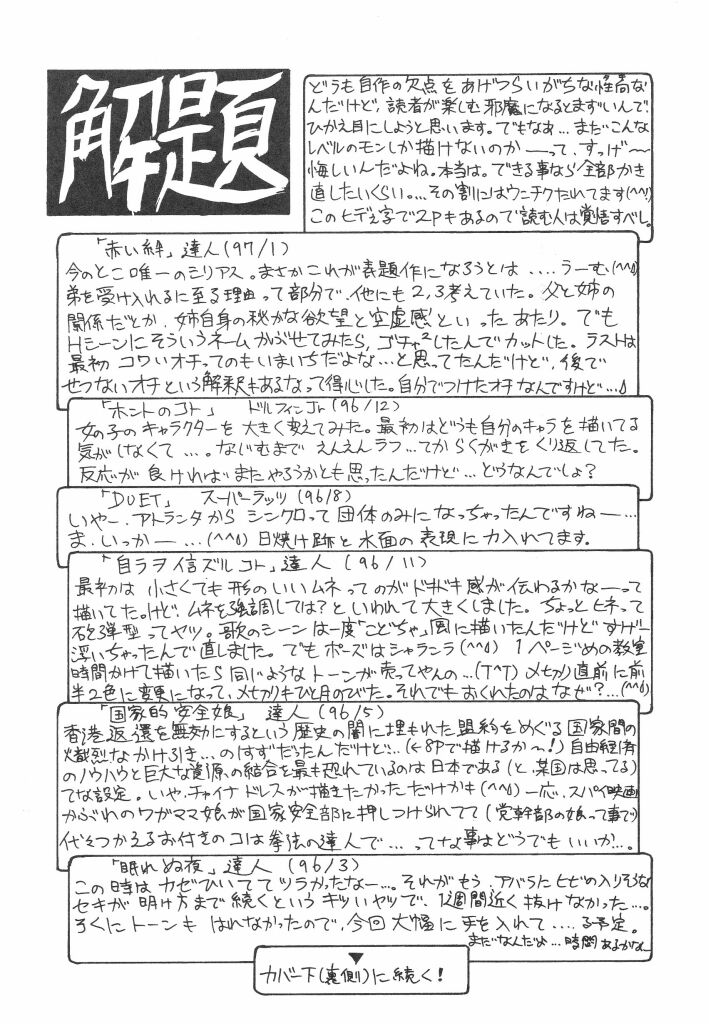 解題
どうも自作の欠点をあげつらいがちな性向な
んだけど、読者が楽しむ邪魔になるとまずいんで、
ひかえ目にしようと思います。でもなあ…まだこんな
レベルのモンしか描けないのか――って、すっげ〜
悔しいんだよね。本当は。できる事なら全部かき
直したいくらい。…その割にはウンチクたれてます(^^;)
このヒデえ字で2Pもあるので読む人は覚悟すべし。
「赤い絆」達人(97/1)
今のとこ唯一のシリアス。まさかこれが表題作になろうとは....うーむ(^^;)
弟を受け入れるに至る理由って部分で、他にも2,3考えていた。父と姉の
関係だとか、姉自身の秘かな欲望と空虚感といったあたり。でも
Hシーンにそういうネームかぶせてみたら、ゴチャ²したんでカットした。ラストは
最初コワいオチってのもいまいちだよな…と思ってたんだけど、後で
せつないオチという解釈もあるなって得心した。自分でつけたオチなんですけど…
「ホントのコト」 ドルフィンJr(96/12)
女の子のキャラクターを大きく変えてみた。最初はどうも自分のキャラを描いてる
気がしなくて...。なじむまでえんえんラフ…てからくがきをくり返してた。
反応が良ければまたやろうかとも思ったんだけど…どうなんでしょ?
「DUET」 スーパーラッツ(96/8)
いやー、アトランタからシンクロって団体のみになっちゃったんですねー…
ま、いっかー…(^^;)日焼け跡と水面の表現に力入れてます。
「自ラヲ信ズルコト」達人(96/11)
最初は小さくても形のいいムネってのがドキドキ感が伝わるかなーって
描いてた。けど、ムネを強調しては?といわれて大きくしました。ちょっとヒネって
砲弾型ってヤツ。歌のシーンは一度「こどちゃ」風に描いたんだけどすげー
浮いちゃったんで直しました。でもポーズはシャラニラ(^^;) 1ページめの教室
時間かけて描いたら同じようなトーンが売ってやんの…(T^T)メ切り直前に前
半2色に変更になって、メ切りもひと月のびた。それでもおくれたのはなぜ?…(^^;)
「国家的安全娘」達人(96/5)
香港返還を無効にするという歴史の闇に埋もれた盟約をめぐる国家間の
熾烈なかけ引き…のはずだったんだけど…(←8Pで描けるか〜!)自由経済
のノウハウと巨大な資源の結合を最も恐れているのは日本である(と、某国は思ってる)
てな設定。いや、チャイナドレスが描きたかっただけかも(^^;)一応、スパイ映画
かぶれのワガママ娘が国家安全部に押しつけられてて(党幹部の娘って事で)
代々つかえるお付きのコは拳法の達人で…ってな事はどうでもいいか…。
「眠れぬ夜」達人(96/3)
この時はカゼひいててツラかったなー…。それがもう、アバラにヒビの入りそうな
セキが明け方まで続くというキツいヤツで、1週間近く抜けなかった…。
ろくにトーンもはれなかったので、今回大幅に手を入れて....る予定。
まだなんだよ…時間あるかなー
▼
カバー下(裏側)に続く!